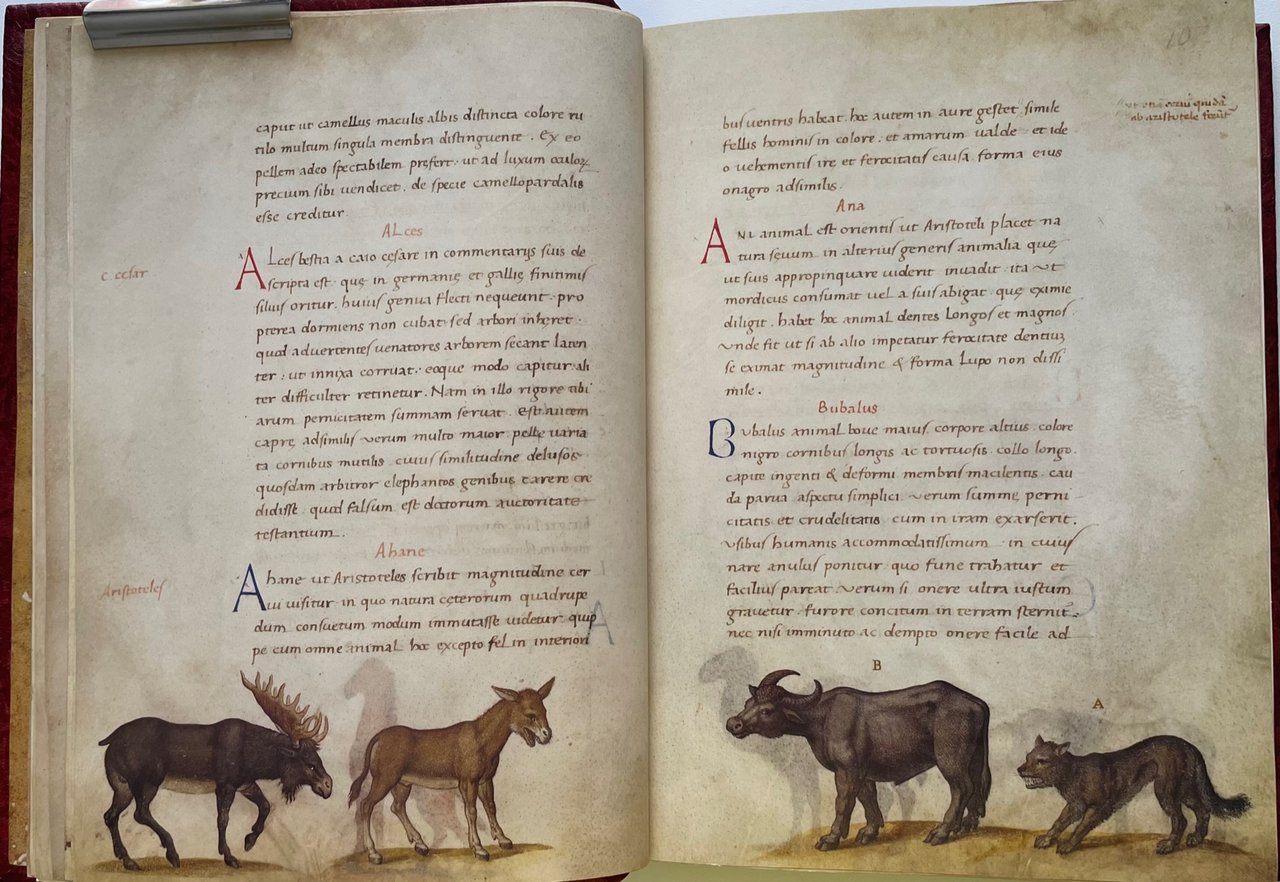 caput ut camellus maculis albis distincta colore ru
tilo multum singula membra distinguente. Ex eo
pellem adeo spectabilem prefert. ut ad luxum oculoꝝ
precium sibi vendicet. de specie camellopardalis
esse creditur.
ALces
c. cesar
ALces bestia a caio cęsare in commentarijs suis de
scripta est. quę in germanię et gallię finitimis
siluis oritur. huius genua flecti nequeunt. pro
pterea dormiens non cubat sed arbori inhęret.
quod advertentes venatores arborem secant laten
ter: ut innixa corruat: eoque modo capitur ali
ter difficulter retinetur. Nam in illo rigore tibi
arum pernicitatem summam seruat. est autem
caprę adsimilis verum multo maior pelle varia
ta cornibus mutilis cuius similitudine delusos
quosdam arbitror elephantos genibus carere cre
didisse quod falsum est doctorum auctoritate
testantium.
Ahane
Aristoteles
Ahane ut Aristoteles scribit magnitudine cer
vi visitur in quo natura cęterorum quadrupe
dum consuetum modum immutasse videtur quip
pe cum omne animal hoc excepto fel in interiori
10
bus ventris habeat. hoc autem in aure gestet simile
fellis hominis in colore. et amarum ualde et ide
o uehementis ire et ferocitatis causa. forma eius
onagro adsimilis.
ab aristotele
Ana
ANi animal est orientis ut Aristoteli placet na
tura sęuum. in alterius generis animalia quę
ut suis appropinquare viderit invadit. ita vt
mordicus consumat vel a suis abigat quę eximie
diligit. habet hoc animal dentes Longos et magnos.
vnde fit ut si ab alio impetatur ferocitate dentiuꝫ
se eximat magnitudine & forma Lupo non dissi
mile.
Bubalus
Bubalus animal boue maius. corpore altius. colore
nigro cornibus longis ac tortuosis. collo longo.
capite ingenti & deformi membris macilentis. cau
da parva aspectu simplici. verum summę perni
citatis et crudelitatis cum in iram exarserit.
vsibus humanis accommodatissimum in cuius
nare anulus ponitur quo fune trahatur et
facilius pareat. verum si onere ultra iustum
gravetur. furore concitum in terram sternit².
nec nisi imminuto ac dempto onere facile ad
B
A